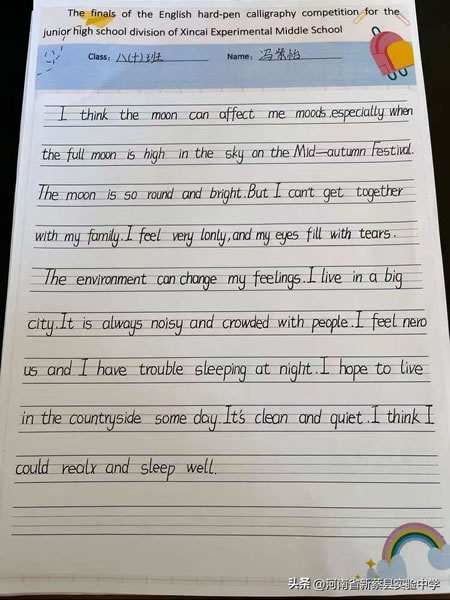 The finals of the English hard-pen calligraphy competition for the
junior high school division of Xincai Experimental Middle School
Class: 八(十)班 Name: 冯紫怡
I think the moon can affect me moods.especially when
the full moon is high in the sky on the Mid—autumn Festival.
The moon is so round and bright.But I can't get together
with my family.I feel very lonly,and my eyes fill with tears.
The environment can change my feelings.I live in a big
city.It is always noisy and crowded with people.I feel nero
us and I have trouble sleeping at night.I hope to live
in the countryside some day.It's clean and quiet.I think I
could realx and sleep well.
头条 @河南省新蔡县实验中学